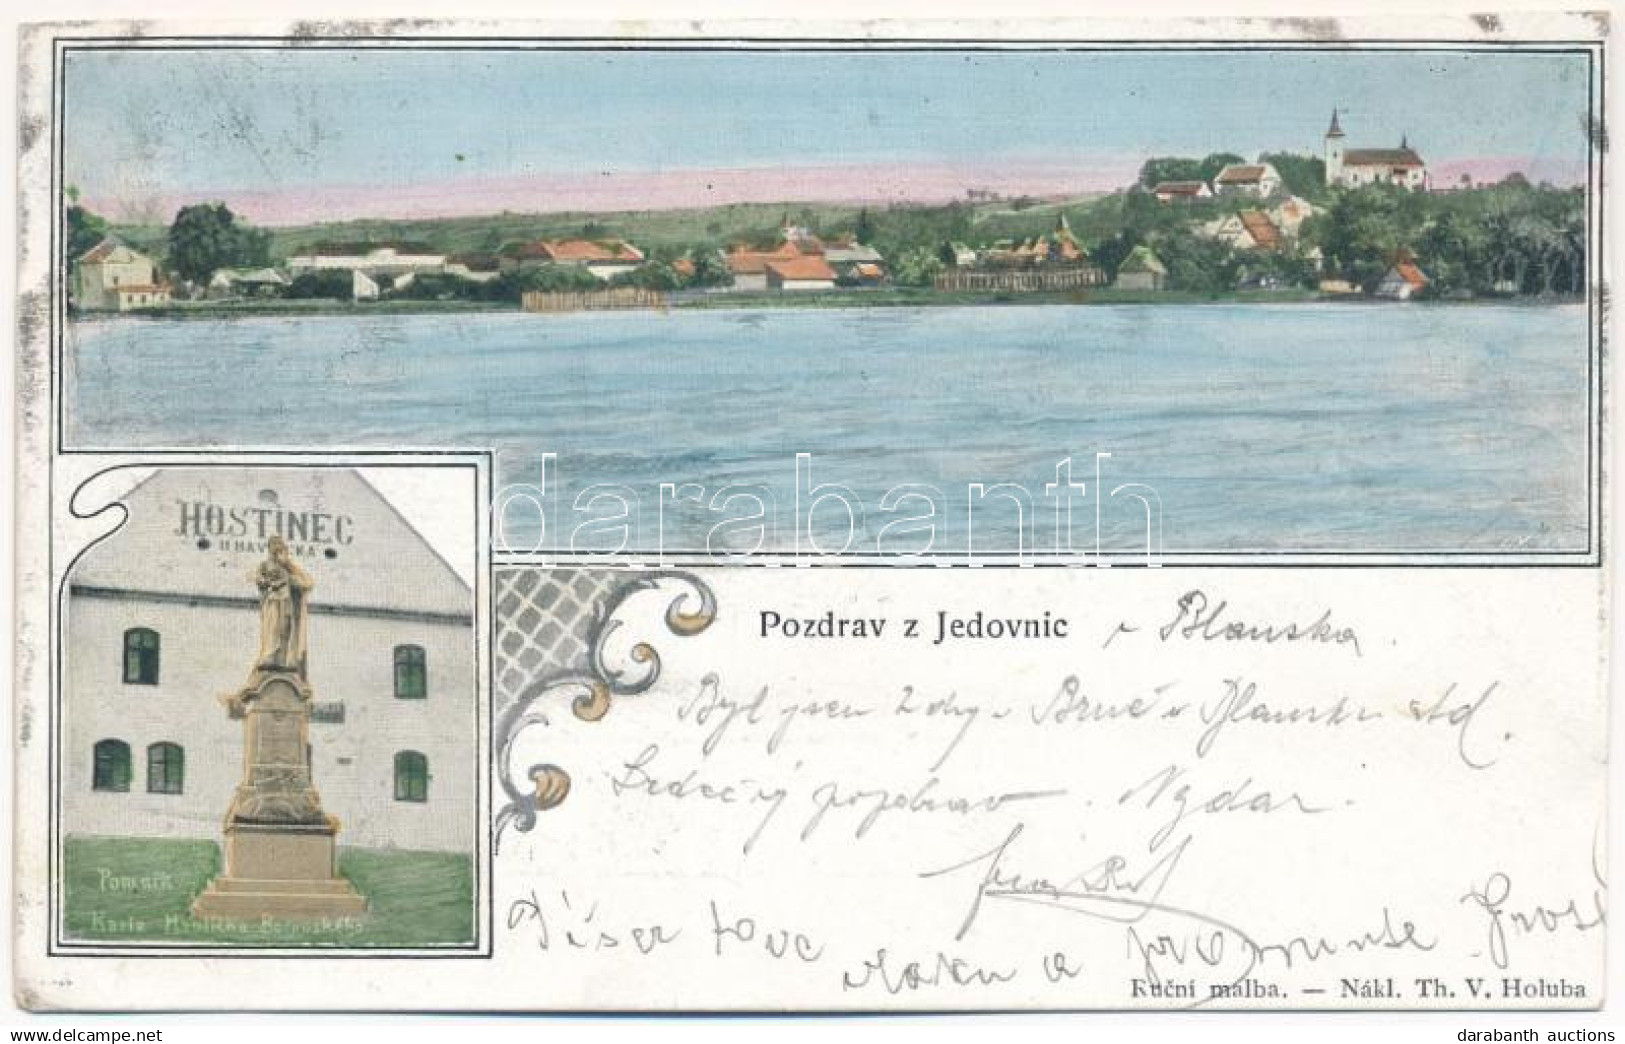 HOSTINEC
U HAVLÍČKA
darabanth
Pomník
Karla Havlíčka Borovského.
Pozdrav z Jedovnic u Blanska.
Byl jsem 2 dny v Brně v Blansku atd.
Srdečný pozdrav. Nazdar.
a
Ruční malba. — Nákl. Th. V. Holuba
Pomc.com
darabanth auctions